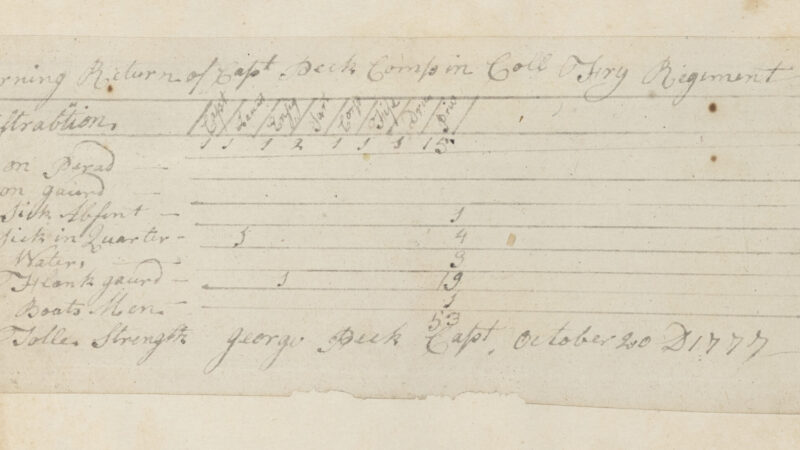 rning Return of Capt Peck Comp in Coll Fry Regiment
strabtion. Capt Leaut Ensig Sart Corp Fife Drum Priv
on Perad 1 1 1 2 1 1 1 15
on gaurd
Sick Absint 1
Sick in Quarter 1 4
Water, 3
Flank gaurd 1 19
Boats Men 1
Tolle Strength 53
George Peck Capt, October 20 D 1777